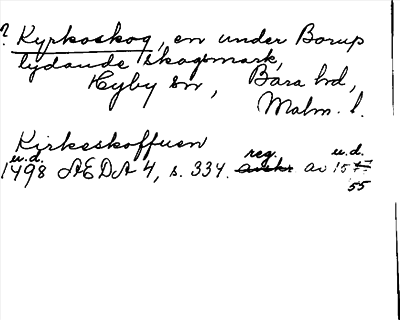 ? Kyrkoskog, en under Borup
lydande skogsmark,
Hyby sn, Bara hd,
Malm. l.
Kirkeskoffuen
u.d. reg. u.d.
1498 ÆDA 4, s. 334. avskr. av 1577
55